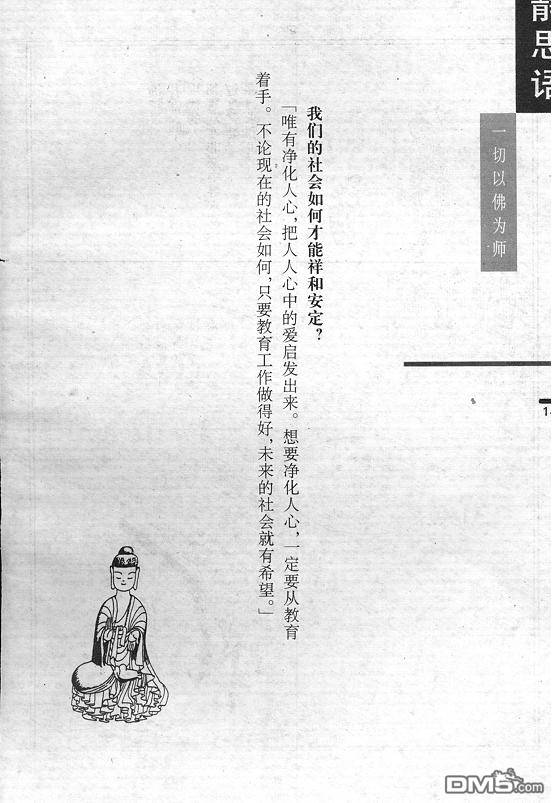 静思语
一切以佛为师
我们的社会如何才能祥和安定？
「唯有净化人心，把人人心中的爱启发出来。想要净化人心，一定要从教育
着手。不论现在的社会如何，只要教育工作做得好，未来的社会就有希望。」